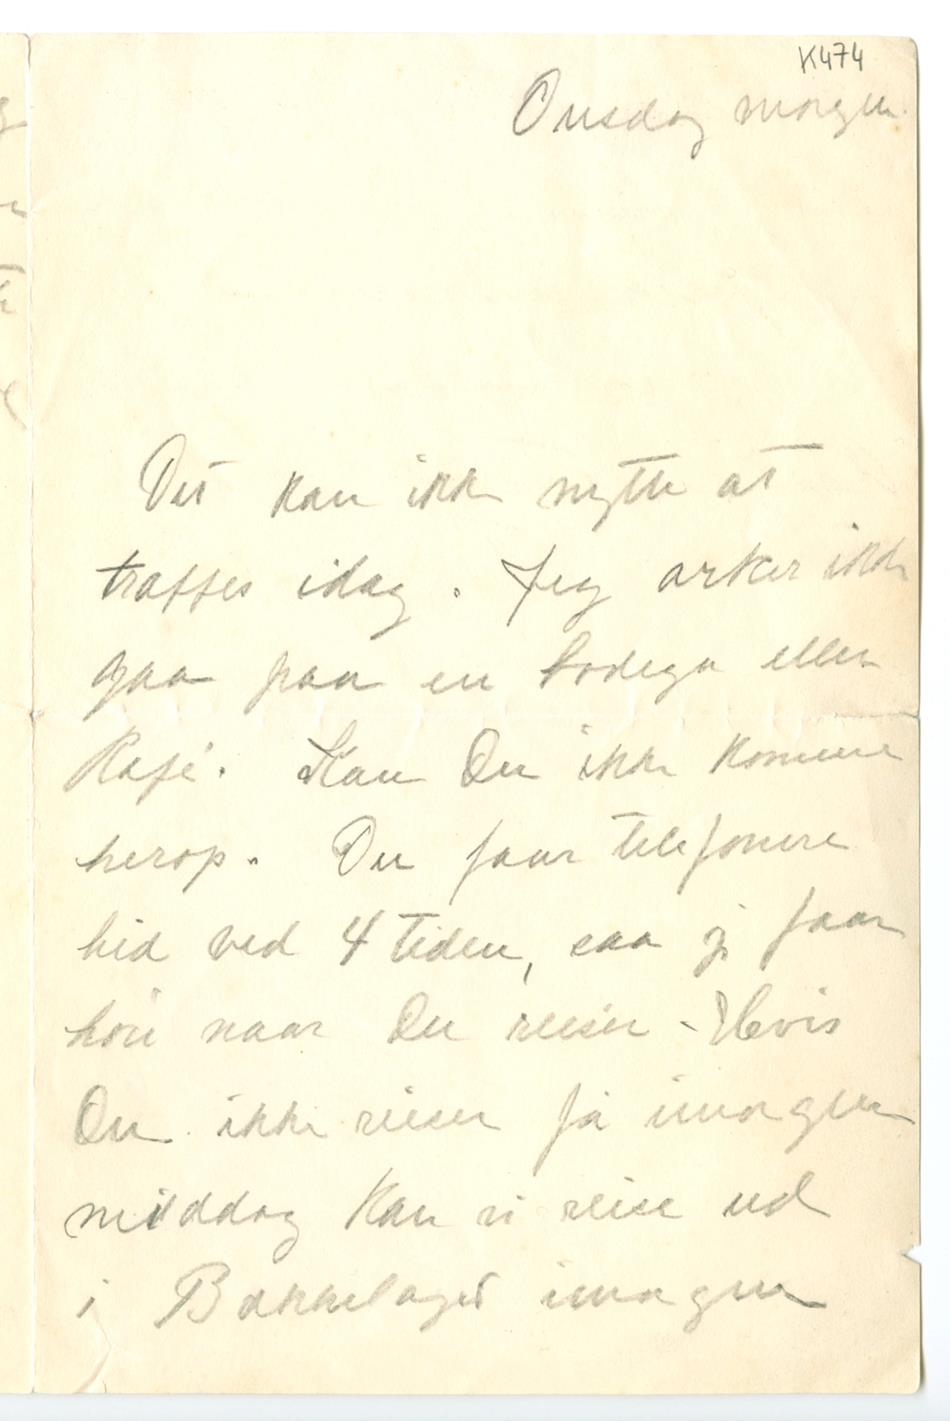 K474
Onsdag morgen
Det kan ikke nytte at
træffes idag. Jeg orker ikke
gaa paa en bodega eller
Kafé. Kan Du ikke komme
herop. Du faar telefonere
hid ved 4 tiden, saa jeg faar
høre naar Du reiser - Hvis
Du ikke reiser før imorgen
middag kan vi reise ud
i Bækkelaget imorgen